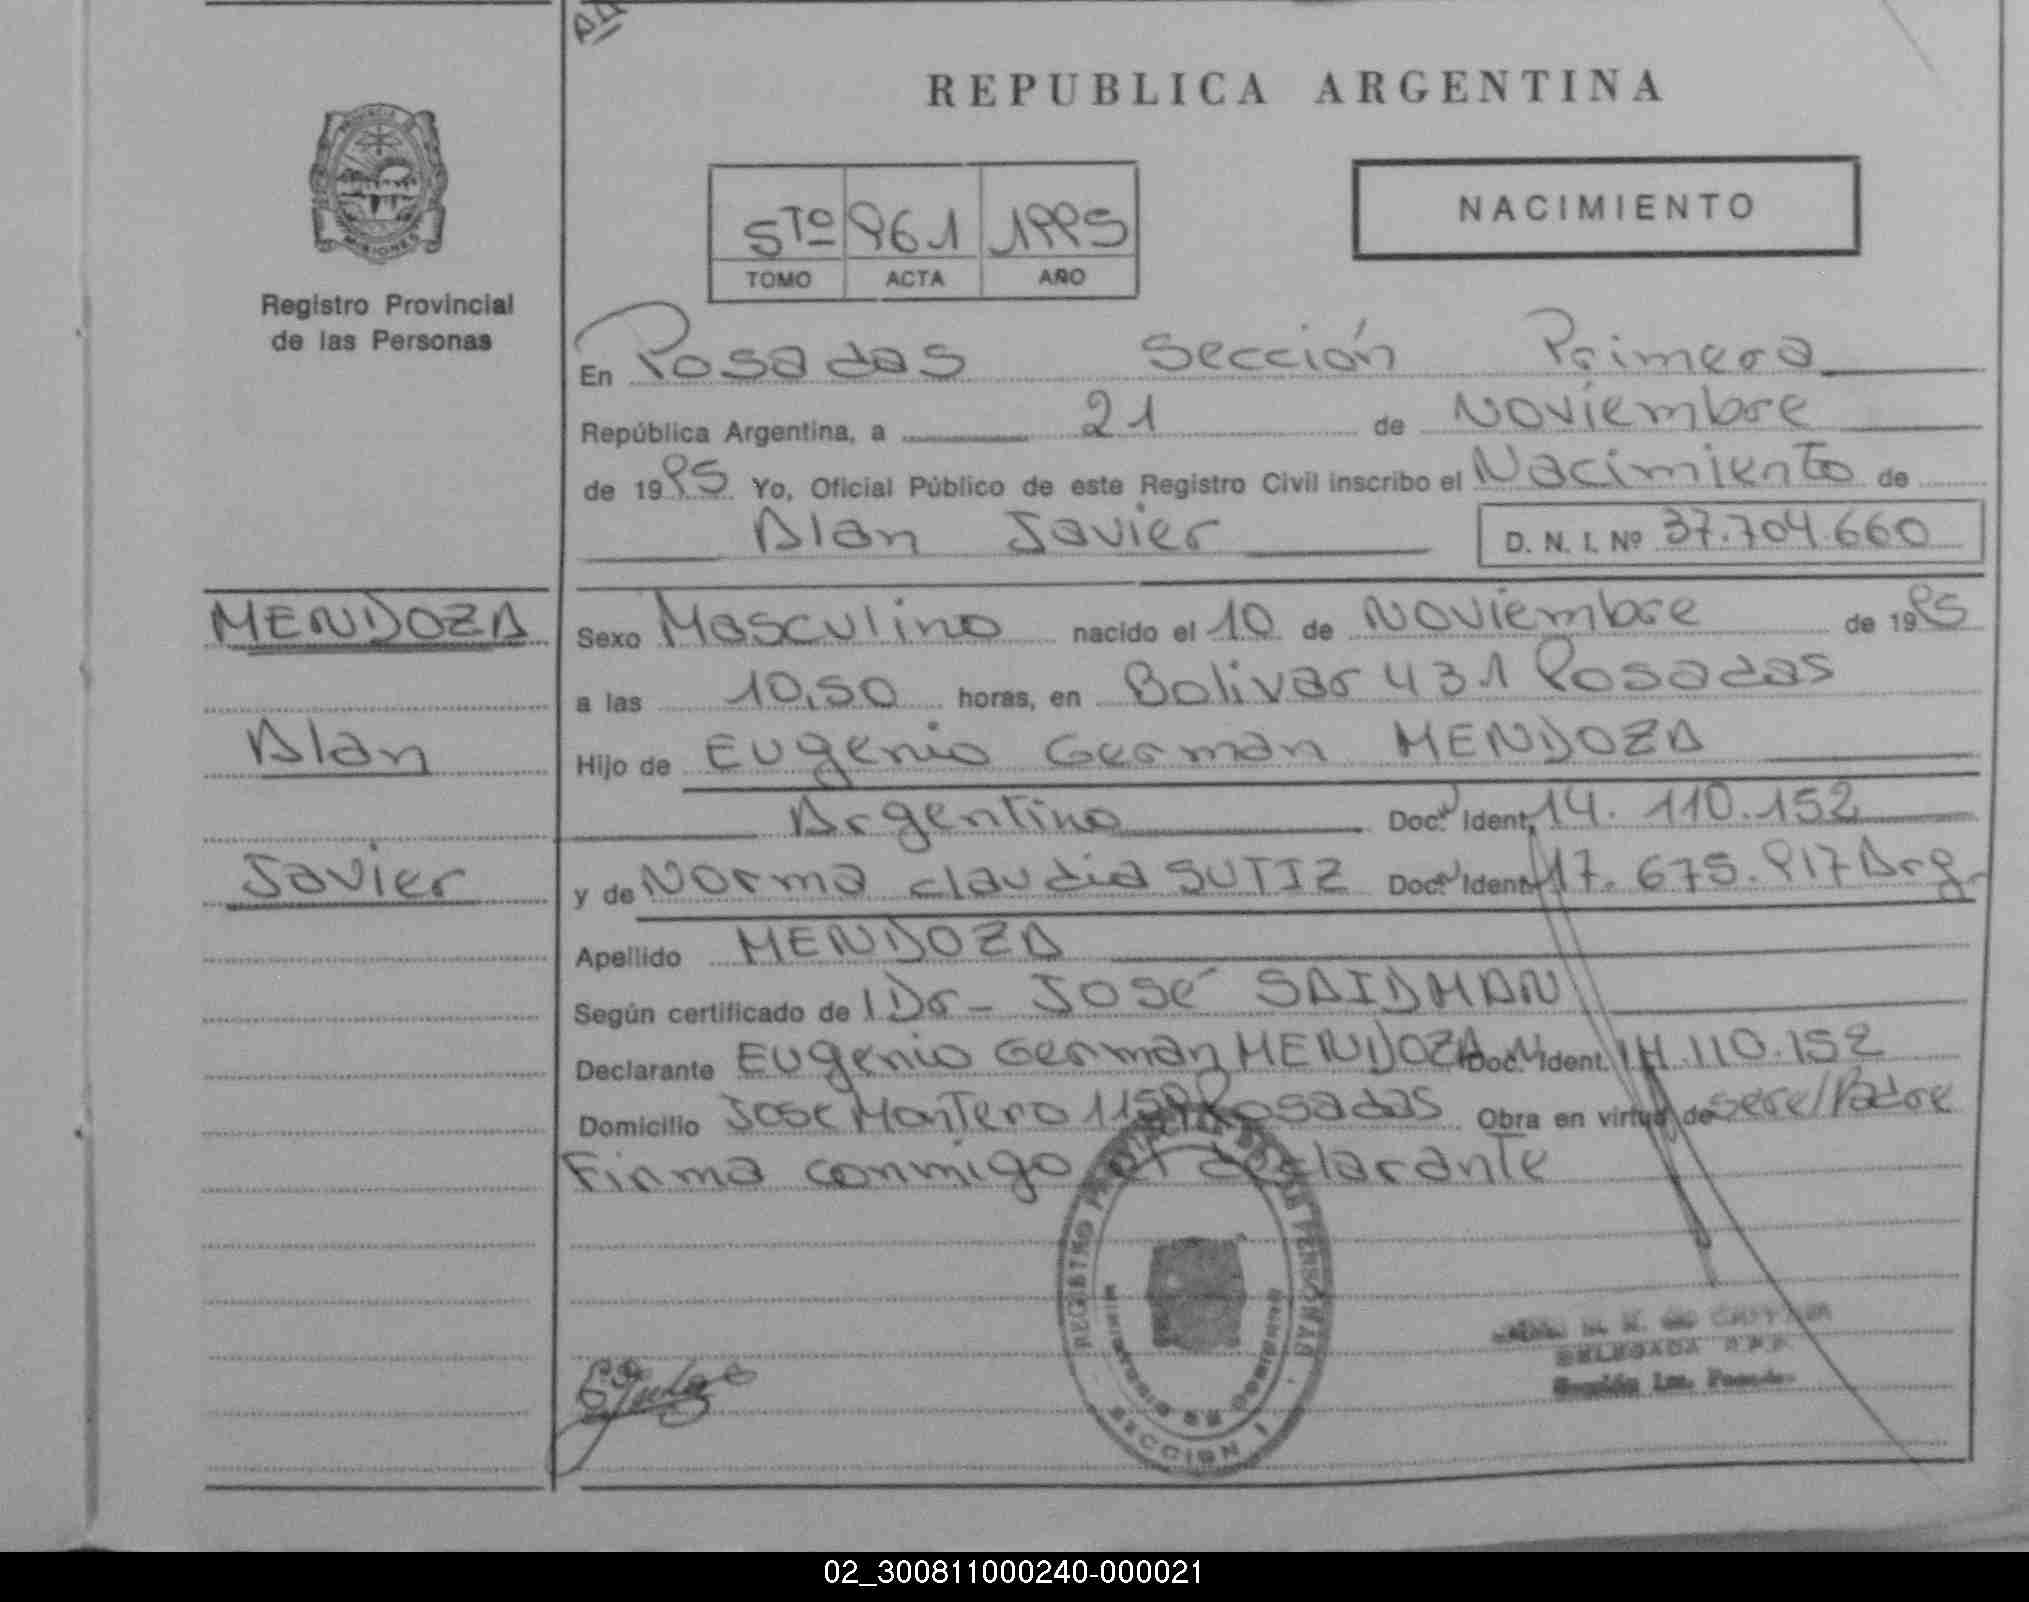 REPUBLICA ARGENTINA
NACIMIENTO
5to 961 1995
TOMO ACTA AÑO
MISIONES
Registro Provincial
de las Personas
En Posadas Sección Primera
República Argentina, a 21 de Noviembre
de 1995 Yo, Oficial Público de este Registro Civil inscribo el Nacimiento de
Alan Javier D. N. I. Nº 37.704.660
MENDOZA
Alan
Javier
Sexo Masculino nacido el 10 de Noviembre de 1995
a las 10,50 horas, en Bolivar 431 Posadas
Hijo de Eugenio German MENDOZA
Argentino Doc. Ident. 14.110.152
y de Norma Claudia SUTIZ Doc. Ident. 17.675.917 Arg.
Apellido MENDOZA
Según certificado de Dr- José SAIDMAN
Declarante Eugenio German MENDOZA Doc. Ident. 14.110.152
Domicilio Jose Montero Posadas Obra en virtud de sere/Padre
Firma conmigo el declarante
REGISTRO DE LAS PERSONAS
SECCION 1
DELEGADA
02_300811000240-000021